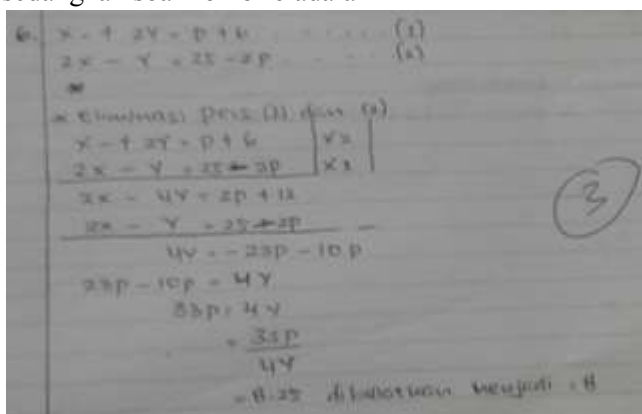 6. x + 2y = p + 6 ...... (1)
2x - y = 25 - 2p ...... (2)
* Eliminasi Pers (1) dan (2)
x + 2y = p + 6 | x2 |
2x - y = 25 - 2p | x1 |
2x - 4y = 2p + 12
2x - y = 25 - 2p -
4y = - 23p - 10p
23p - 10p = 4y
33p = 4y
= 33p
4y
= 8.25 menjadi = 8
3